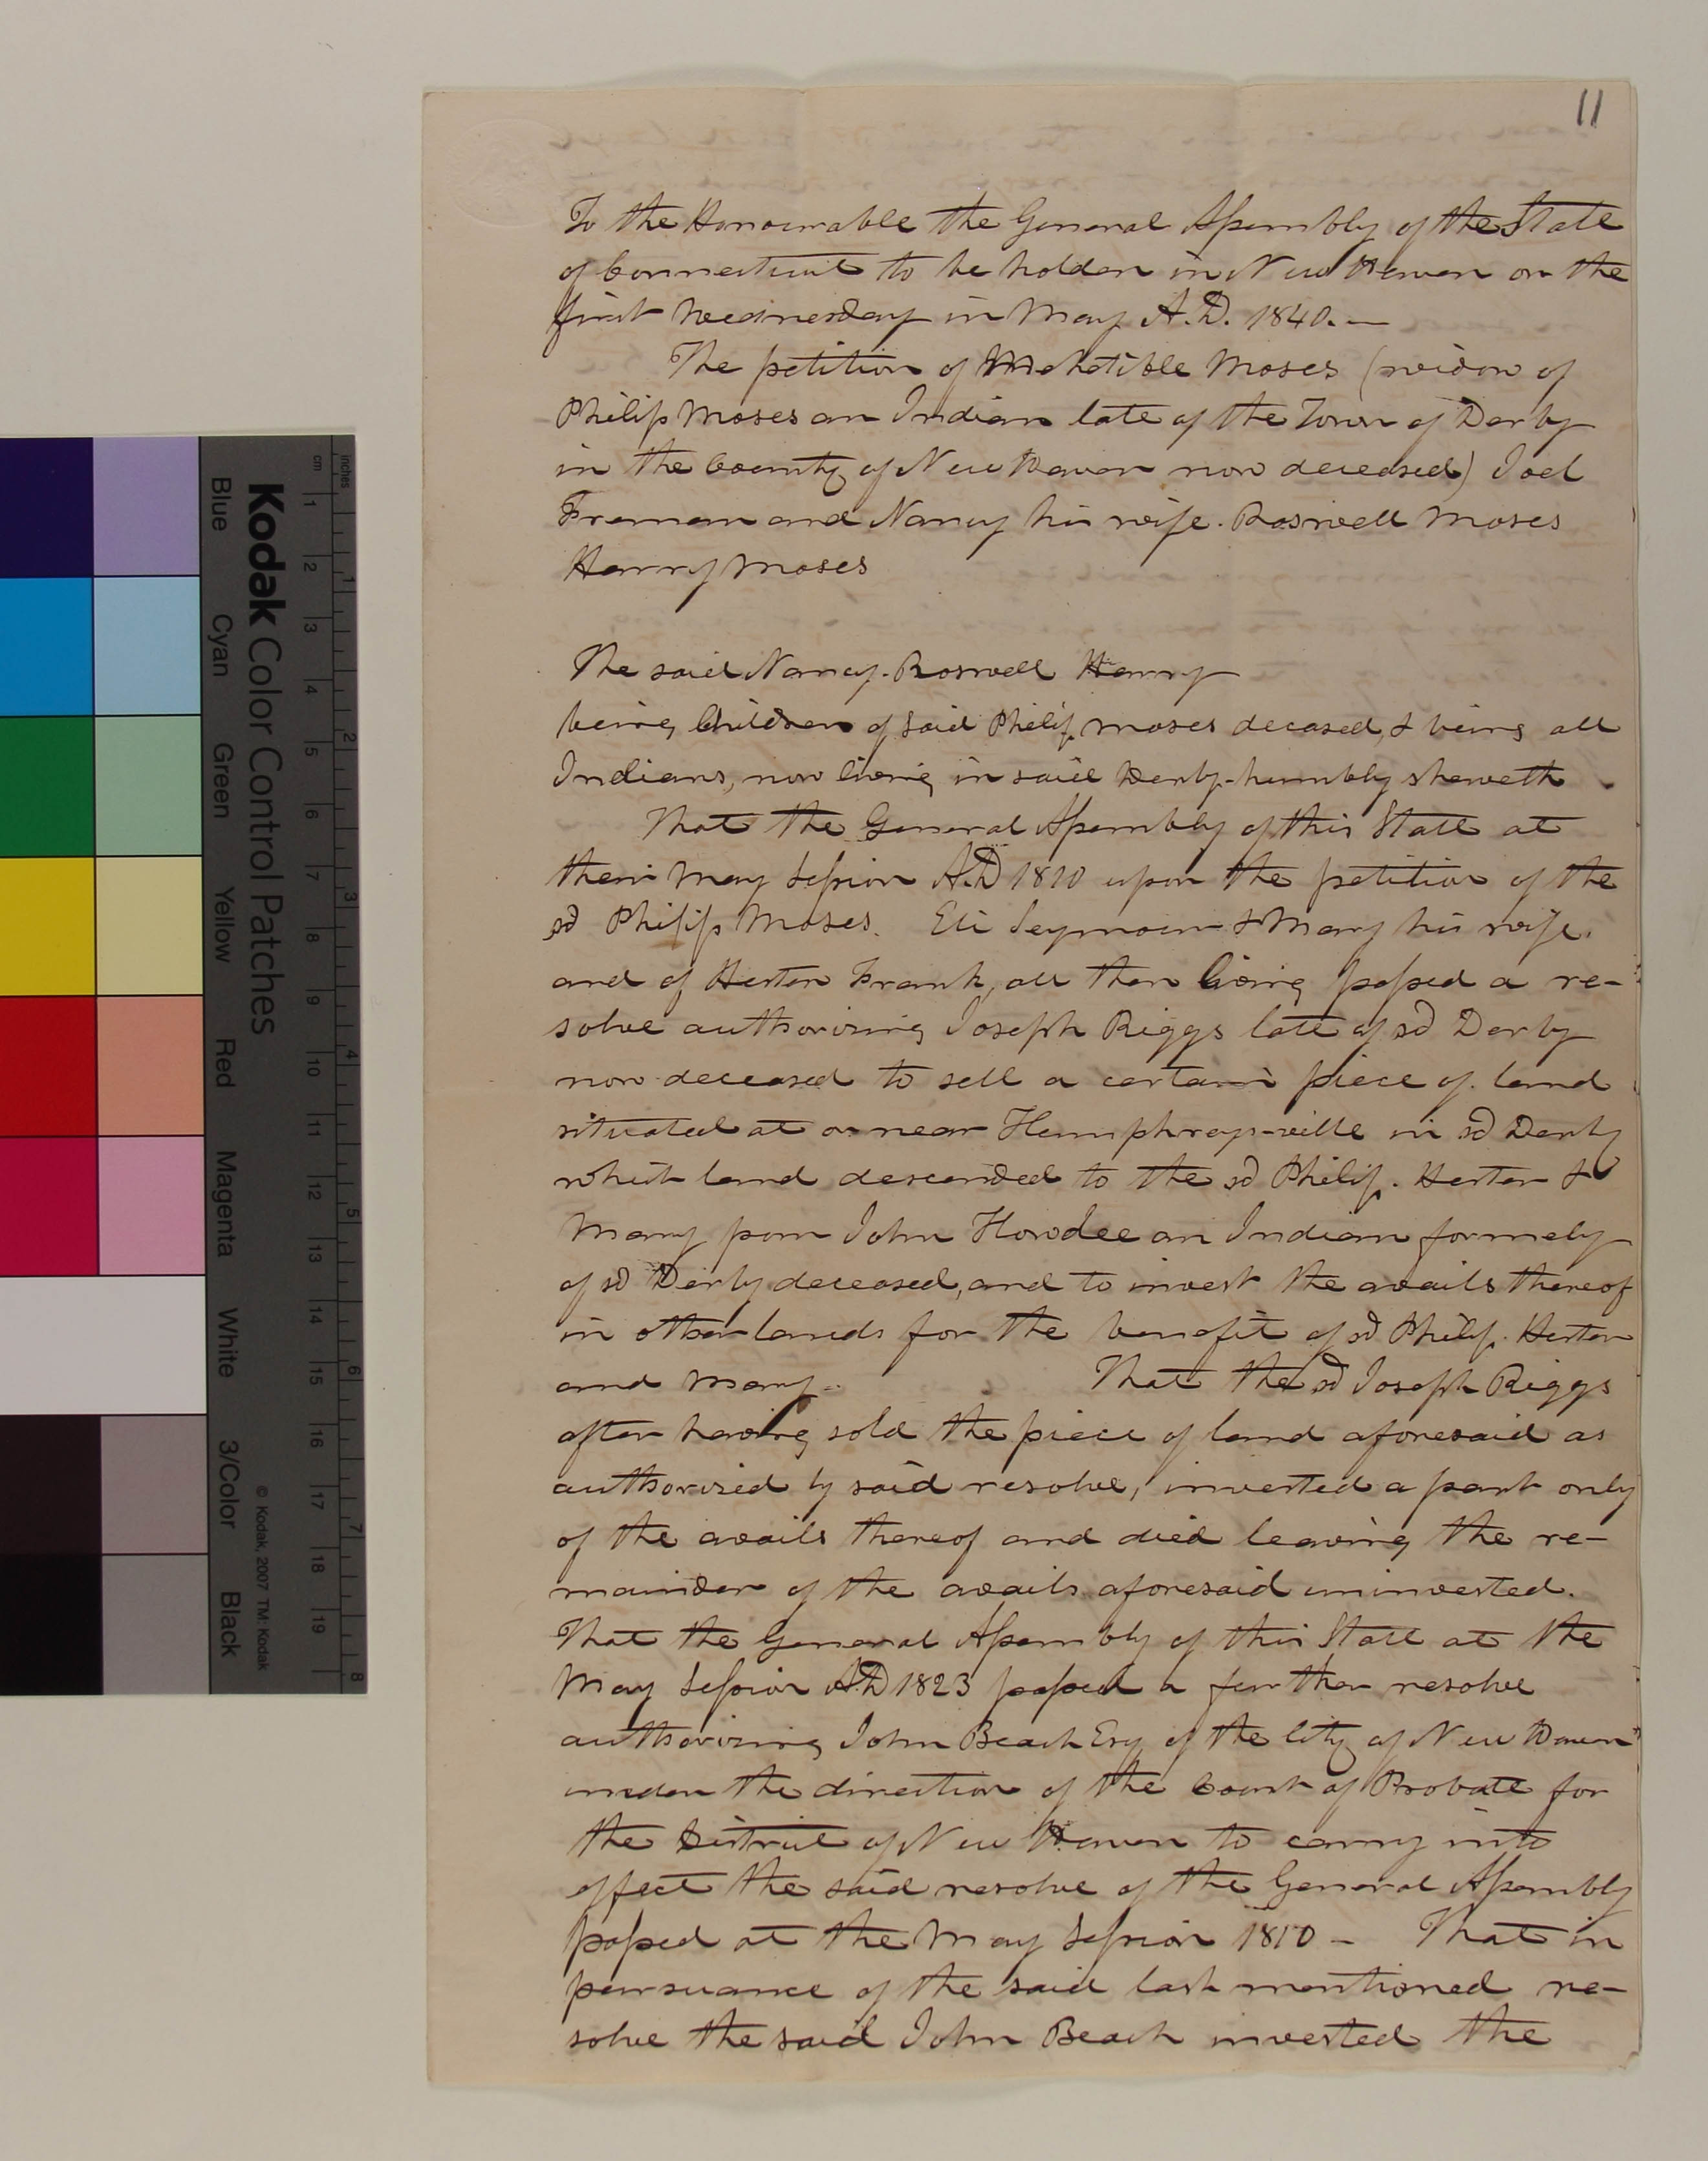 11
To the Honourable the General Assembly of the State
of Connecticut to be holden in New Haven on the
first Wednesday in May A.D. 1840.—
The petition of Mehetible Moses (widow of
Philip Moses an Indian late of the Town of Derby
in the County of New Haven now deceased) Joel
Freman and Nancy his wife. Roswell Moses
Harry Moses
The said Nancy. Roswell Harry
being Children of said Philip Moses deceased, & being all
Indians, now living in said Derby-humbly sheweth
That the General Assembly of this State at
their May Session A.D 1810 upon the petition of the
sd Philip Moses. Eli Seymour & Mary his wife.
and of Hester Frank, all then living passed a re-
solve authorising Joseph Riggs late of sd Derby
now deceased to sell a certain piece of land
situated at or near Humphrey-ville in sd Derby
which land descended to the sd Philip. Hester &
Mary from John Howdee an Indian formely
of sd Derby deceased, and to invest the avails thereof
in other lands for the benefit of sd Philip. Hester
and Mary. That the sd Joseph Riggs
after having sold the piece of land aforesaid as
authorised by said resolve, invested a part only
of the avails thereof and died leaving the re-
mainder of the avails aforesaid uninvested.
That the General Assembly of this State at the
May Session A.D 1823 passed a further resolve
authorising John Beach Esq of the City of New Haven
under the direction of the Court of Probate for
the District of New Haven to carry into
effect the said resolve of the General Assembly
passed at the May Session 1810 - That in
pursuance of the said last mentioned re-
solve the said John Beach invested the
Kodak Color Control Patches
Blue Cyan Green Yellow Red Magenta White 3/Color Black
© Kodak, 2007 TM: Kodak
cm 1 2 3 4 5 6 7 8 9 10 11 12 13 14 15 16 17 18 19
inches 1 2 3 4 5 6 7 8